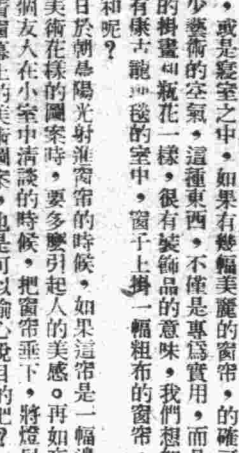 ，或是寢室之中，如果有幾幅美麗的窗帘，的確
少藝術的空氣，這種東西，不僅是專爲實用，而且
的掛畫和瓶花一樣，很有裝飾品的意味，我們想想
有康古龍 毯的室中，窗子上掛 一幅粗布的窗帘，
和呢？
日於朝 陽光射進窗帘的時候，如果這帘是一幅
美術花樣的圖案時，要多麼引起人的美感。再如
個友人在小室中清談的時候，把窗帘垂下，將燈
窗幕上的美術圖案，也是可以愉心悅目的吧？